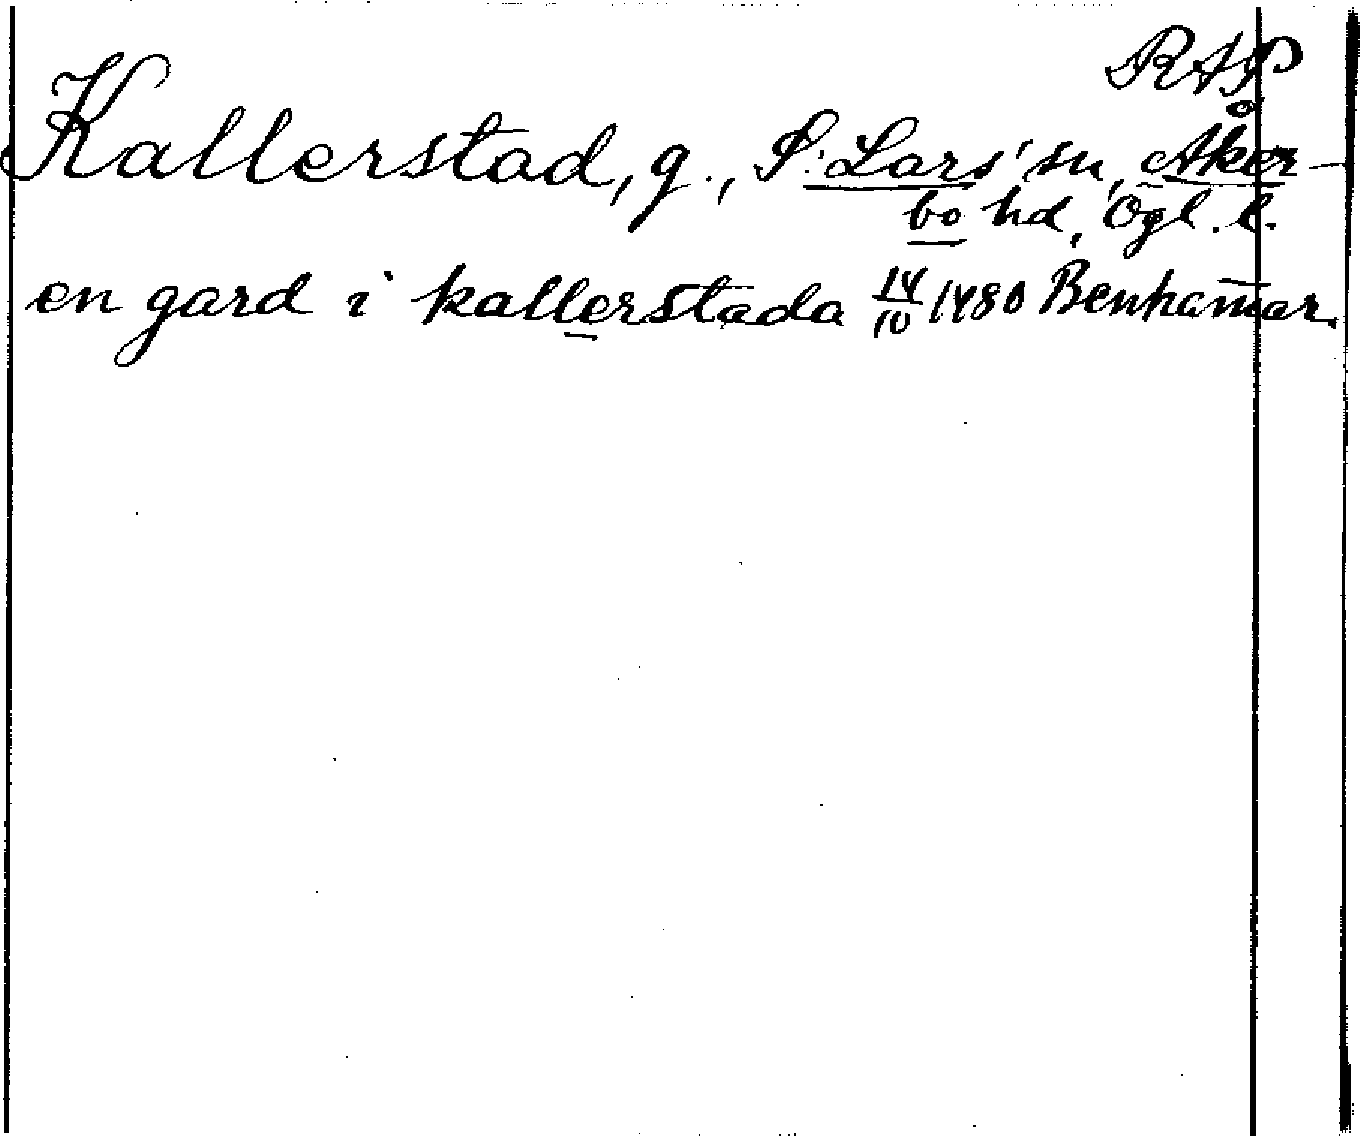 RAP
Kallerstad, g., S:t Lars' sn, Åker-
bo hd, Ögl. l.
en gard i kallerstada 14/10 1480 Benhamar.